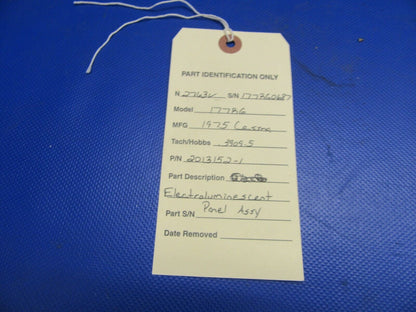 PART IDENTIFICATION ONLY
N 2763V S/N 177RG0687
Model 177RG
MFG 1975 Cessna
Tach/Hobbs 3909.5
P/N 2013152-1
Part Description
Electroluminescent
Part S/N Panel Assy
Date Removed